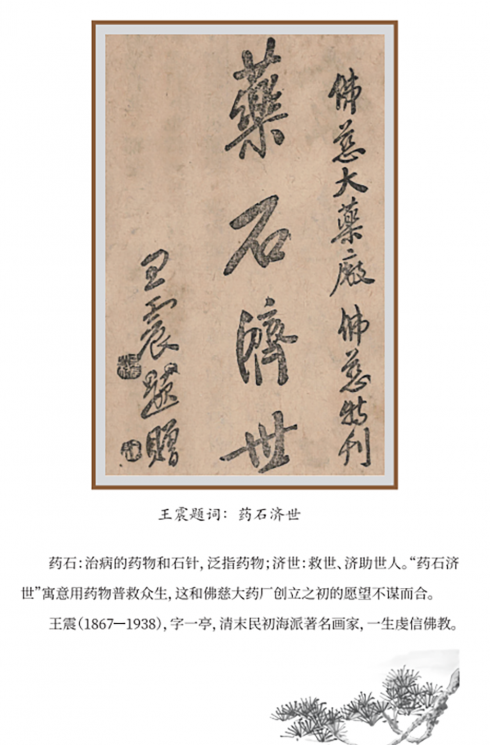 佛慈大藥廠佛慈特刊
藥石濟世
王震題贈
王震题词：药石济世
药石：治病的药物和石针，泛指药物；济世：救世、济助世人。“药石济
世”寓意用药物普救众生，这和佛慈大药厂创立之初的愿望不谋而合。
王震（1867—1938），字一亭，清末民初海派著名画家，一生虔信佛教。